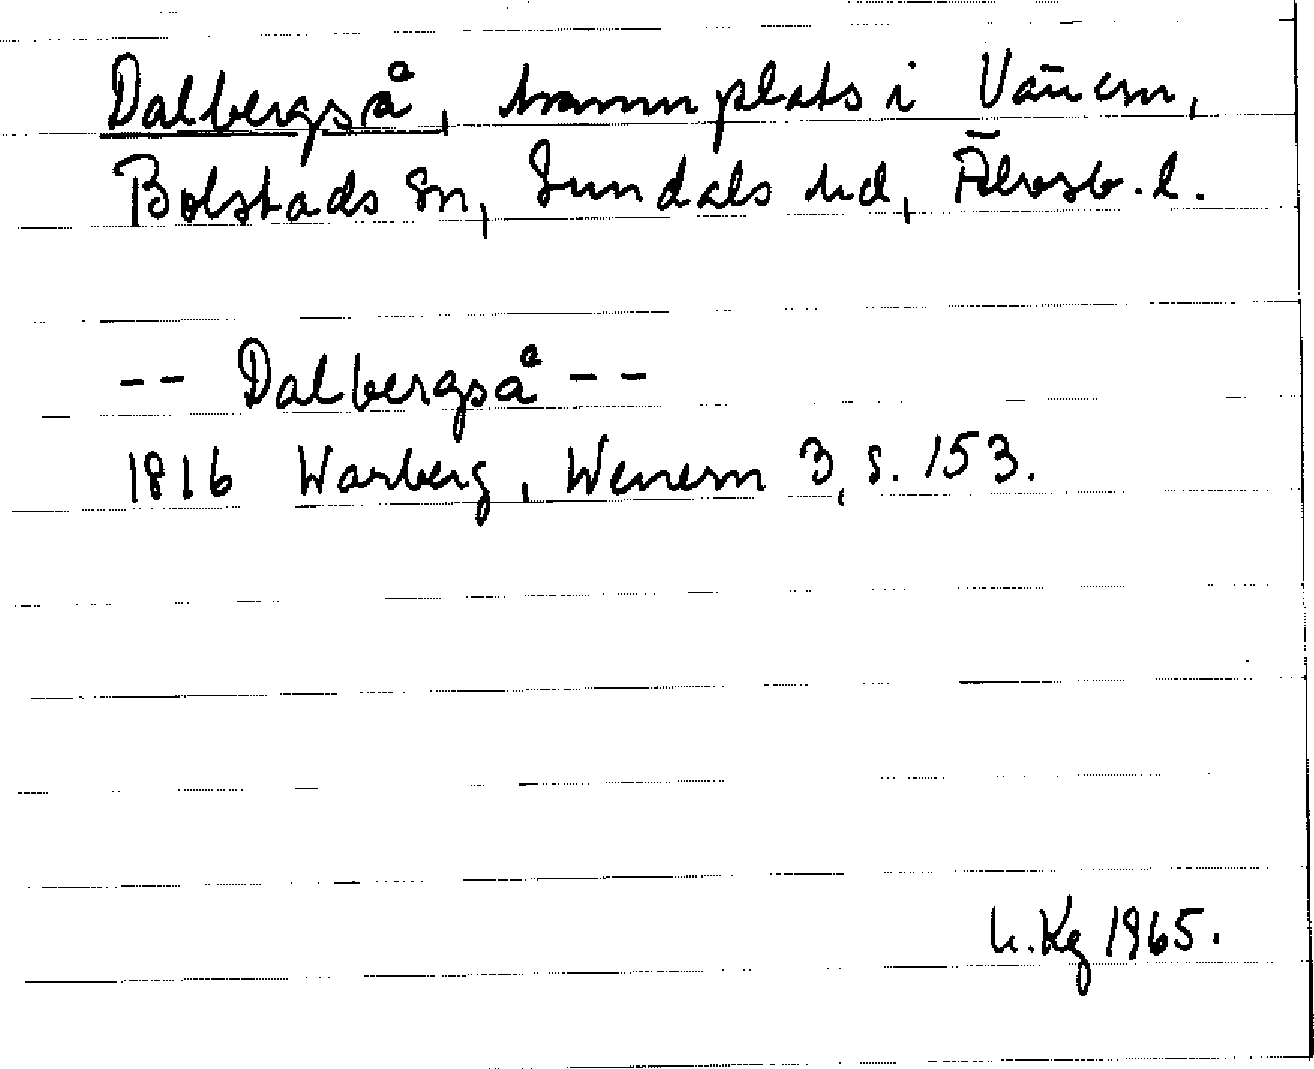 Dalbergså, hamnplats i Vänern,
Bolstads sn, Sundals hd, Älvsb. l.
-- Dalbergså --
1816 Warberg, Wenern 3, s. 153.
h. Kg 1965.